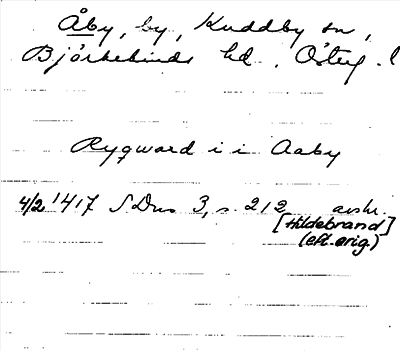 Åby, by, Kuddby sn,
Björkekinds hd, Österg. l
Rygward i i Aaby
4/2 1417 SDns 3, s. 212 avskr.
[Hildebrand]
(eft. orig.)